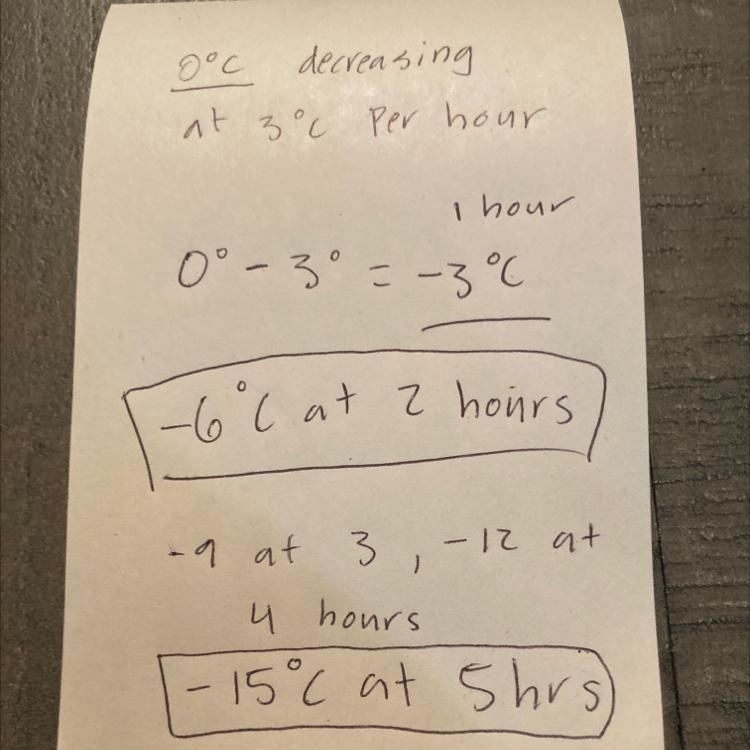 0°C decreasing
at 3°C Per hour
1 hour
0° - 3° = -3°C
-6°C at 2 hours
-9 at 3, -12 at
4 hours
-15°C at 5hrs